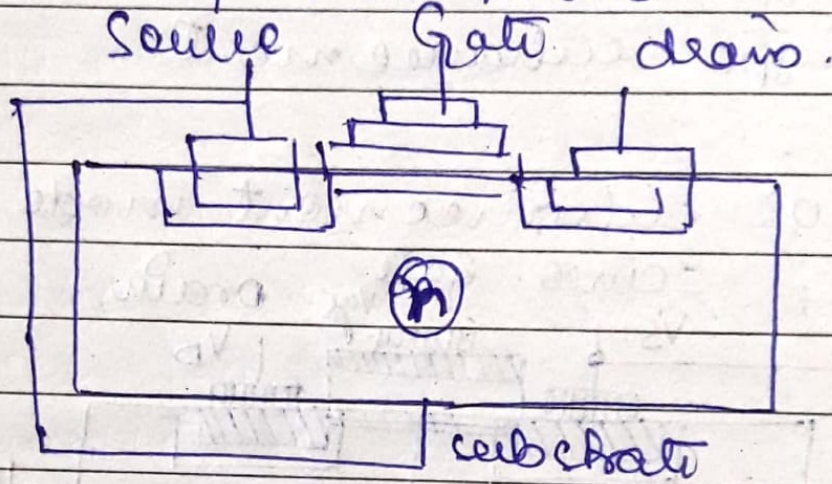 Source Gate drain.
n
substrate